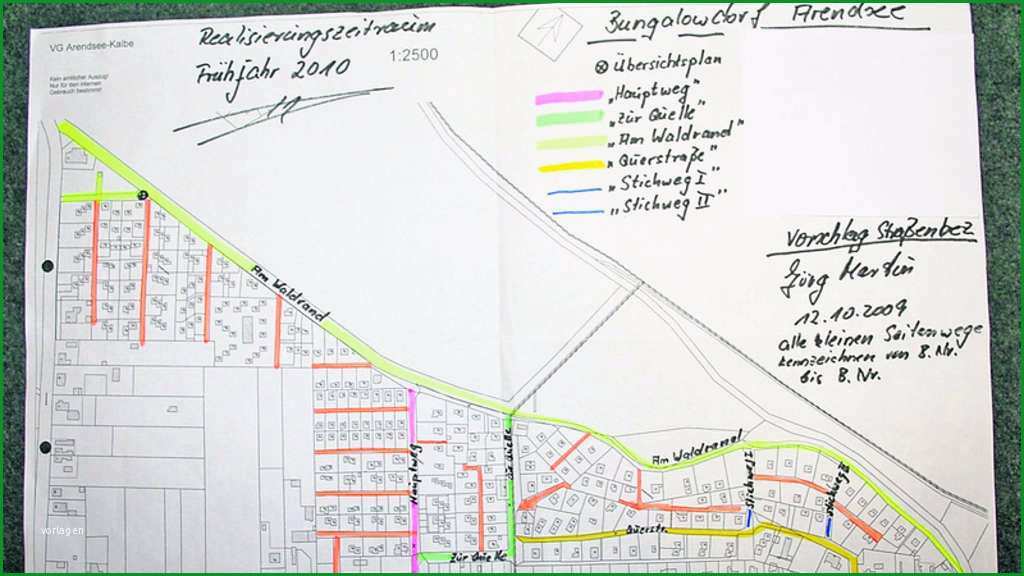 VG Arendsee-Kalbe
Kein amtlicher Auszug!
Nur für den internen
Gebrauch bestimmt!
Realisierungszeitraum
Frühjahr 2010
1:2500
Bungalowdorf Arendsee
Übersichtsplan
"Hauptweg"
"Zur Quelle"
"Am Waldrand"
"Querstraße"
"Stichweg I"
"Stichweg II"
Vorschlag Straßenbez
Jörg Martin
12.10.2009
alle kleinen Seitenwege
kennzeichnen von B.Nr.
bis B.Nr.
Am Waldrand
Am Waldrand
Hauptweg
Zur Quelle
Stichweg I
Stichweg II
Querstr.
Zur Quelle
vorlagen